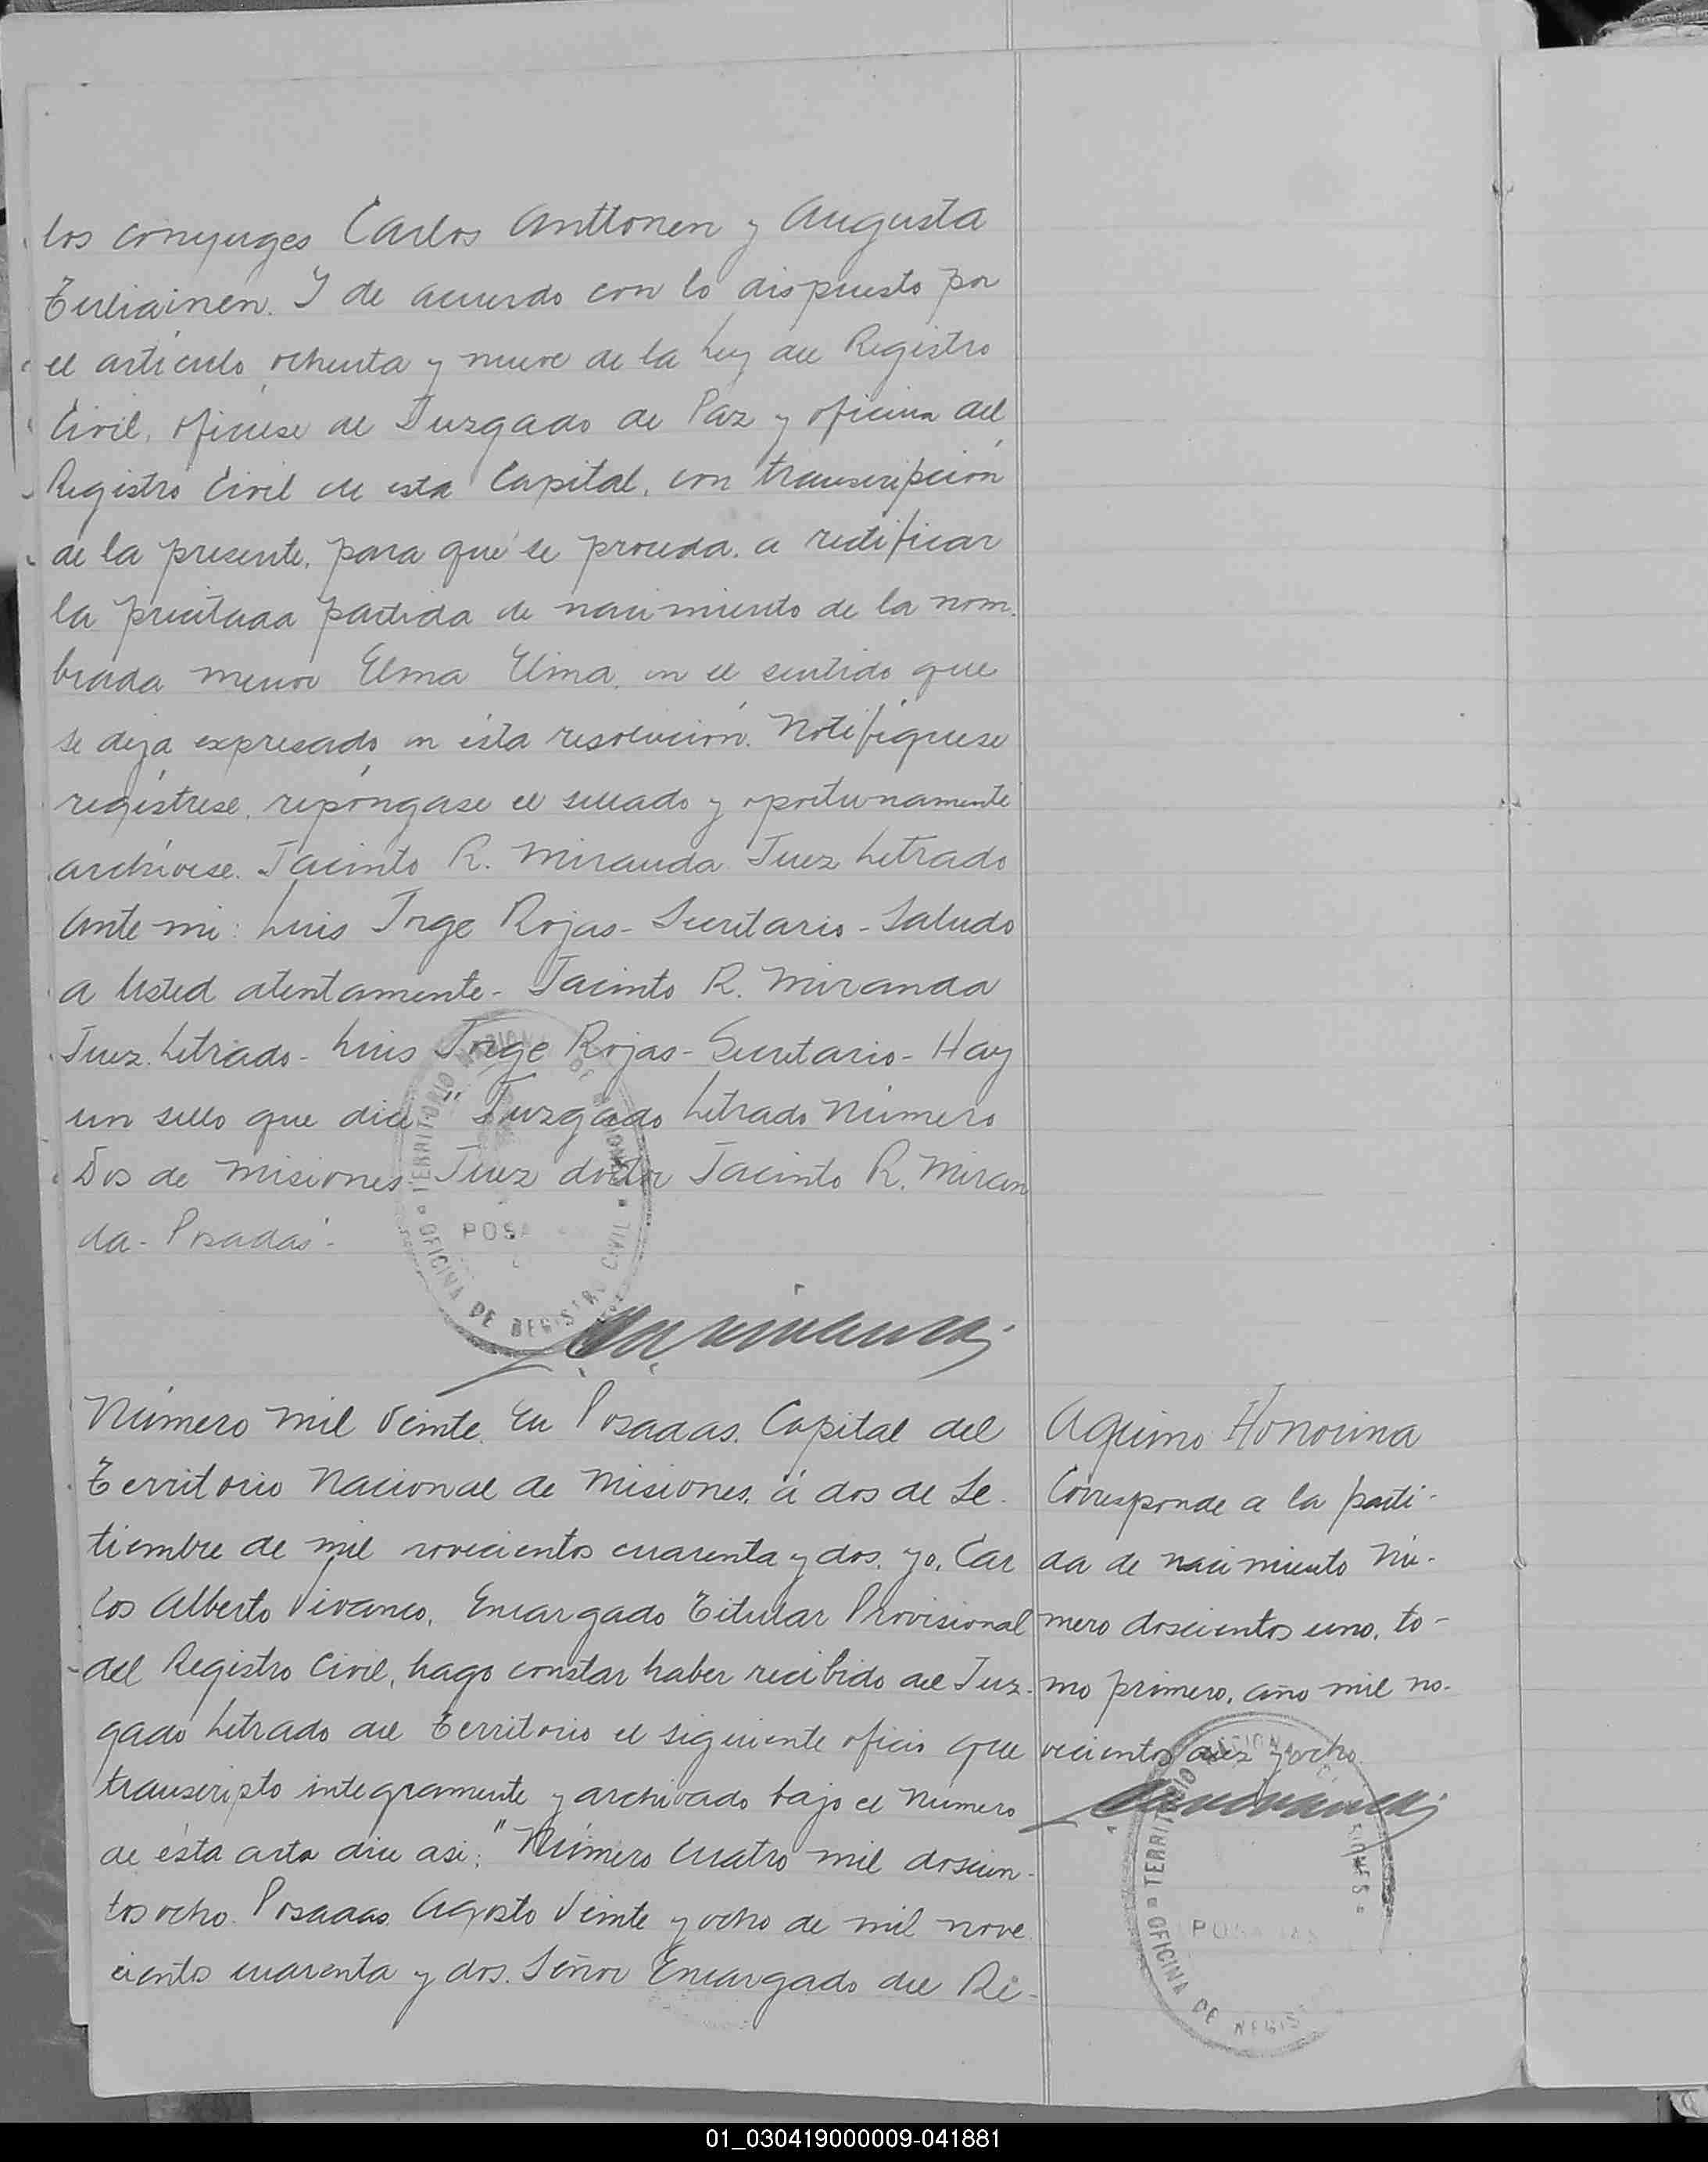 los conyuges Carlos Anttonen y Augusta
Tuliainen. Y de acuerdo con lo dispuesto por
el artículo ochenta y nueve de la Ley del Registro
Civil, ofíciese al Juzgado de Paz y oficina del
Registro Civil de esta Capital, con transcripción
de la presente, para que se proceda a rectificar
la precitada partida de nacimiento de la nom-
brada menor Elma Elina, en el sentido que
se deja expresado en ésta resolución. Notifíquese
regístrese, repóngase el sellado y oportunamente
archívese. Jacinto R. Miranda Juez Letrado
Ante mi: Luis Jorge Rojas - Secretario - Saludo
a Usted atentamente - Jacinto R. Miranda
Juez Letrado - Luis Jorge Rojas - Secretario - Hay
un sello que dice "Juzgado Letrado Número
Dos de Misiones. Juez doctor Jacinto R. Miran
da - Posadas" -
TERRITORIO NACIONAL DE MISIONES
POSADAS
OFICINA DE REGISTRO CIVIL
Número mil veinte. En Posadas. Capital del
Territorio Nacional de Misiones, á dos de Se-
tiembre de mil novecientos cuarenta y dos, yo, Car
los Alberto Vivanco, Encargado Titular Provisional
del Registro Civil, hago constar haber recibido del Juz-
gado Letrado del Territorio el siguiente oficio que
transcripto integramente y archivado bajo el número
de ésta acta dice asi: "Número cuatro mil doscien-
tos ocho. Posadas Agosto veinte y ocho de mil nove
cientos cuarenta y dos. Señor Encargado del Re-
Aquino Honorina
Corresponde a la parti-
da de nacimiento Nú-
mero doscientos uno, to-
mo primero, año mil no-
vecientos diez y ocho.
TERRITORIO NACIONAL DE MISIONES
POSADAS
OFICINA DE REGISTRO
01_030419000009-041881